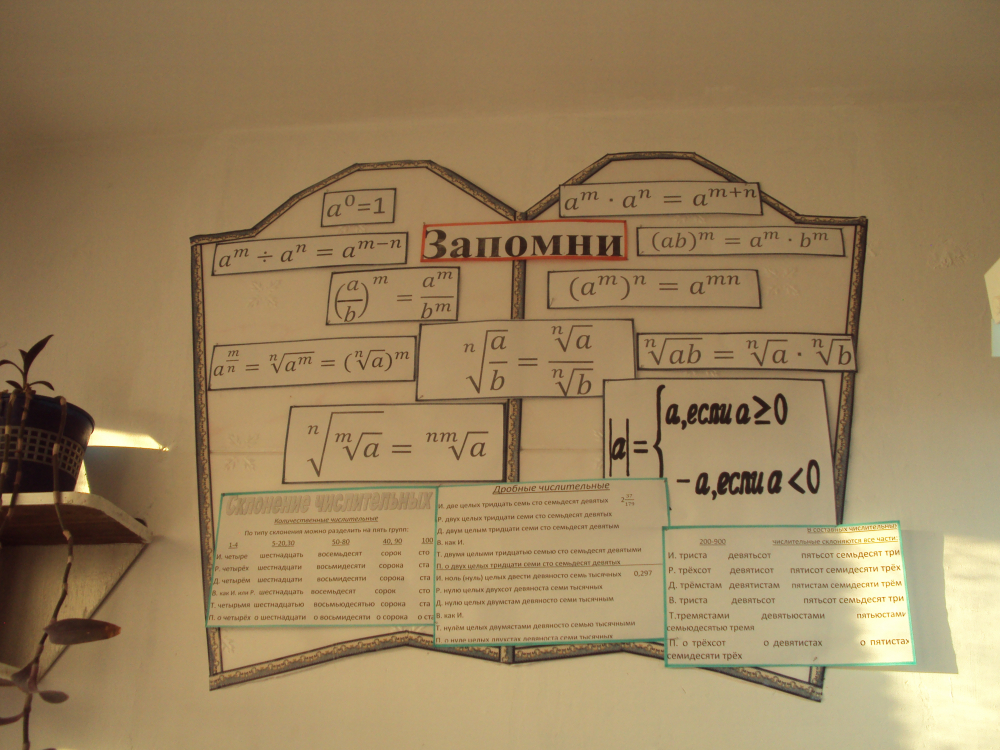 a⁰=1
aᵐ · aⁿ = aᵐ⁺ⁿ
aᵐ ÷ aⁿ = aᵐ⁻ⁿ
Запомни
(ab)ᵐ = aᵐ · bᵐ
(a/b)ᵐ = aᵐ/bᵐ
(aᵐ)ⁿ = aᵐⁿ
a^(m/n) = ⁿ√aᵐ = (ⁿ√a)ᵐ
ⁿ√(a/b) = ⁿ√a/ⁿ√b
ⁿ√ab = ⁿ√a · ⁿ√b
ⁿ√(ᵐ√a) = ⁿᵐ√a
|a| = { a, если a ≥ 0
- a, если a < 0
Склонение числительных
Количественные числительные
По типу склонения можно разделить на пять групп:
1-4 5-20,30 50-80 40, 90 100
И. четыре шестнадцать восемьдесят сорок сто
Р. четырёх шестнадцати восьмидесяти сорока ста
Д. четырём шестнадцати восьмидесяти сорока ста
В. как И. или Р. шестнадцать восемьдесят сорок сто
Т. четырьмя шестнадцатью восьмьюдесятью сорока ста
П. о четырёх о шестнадцати о восьмидесяти о сорока о ста
Дробные числительные
И. две целых тридцать семь сто семьдесят девятых 2 37/179
Р. двух целых тридцати семи сто семьдесят девятых
Д. двум целым тридцати семи сто семьдесят девятым
В. как И.
Т. двумя целыми тридцатью семью сто семьдесят девятыми
П. о двух целых тридцати семи сто семьдесят девятых
И. ноль (нуль) целых двести девяносто семь тысячных 0,297
Р. нуля целых двухсот девяносто семи тысячных
Д. нулю целых двумстам девяносто семи тысячным
В. как И.
Т. нулём целых двумястами девяносто семью тысячными
П. о нуле целых двухстах девяноста семи тысячных
В составных числительных
200-900 числительные склоняются все части:
И. триста девятьсот пятьсот семьдесят три
Р. трёхсот девятисот пятисот семидесяти трёх
Д. трёмстам девятистам пятистам семидесяти трём
В. триста девятьсот пятьсот семьдесят три
Т.тремястами девятьюстами пятьюстами
семьюдесятью тремя
П. о трёхсот о девятистах о пятистах
семидесяти трёх